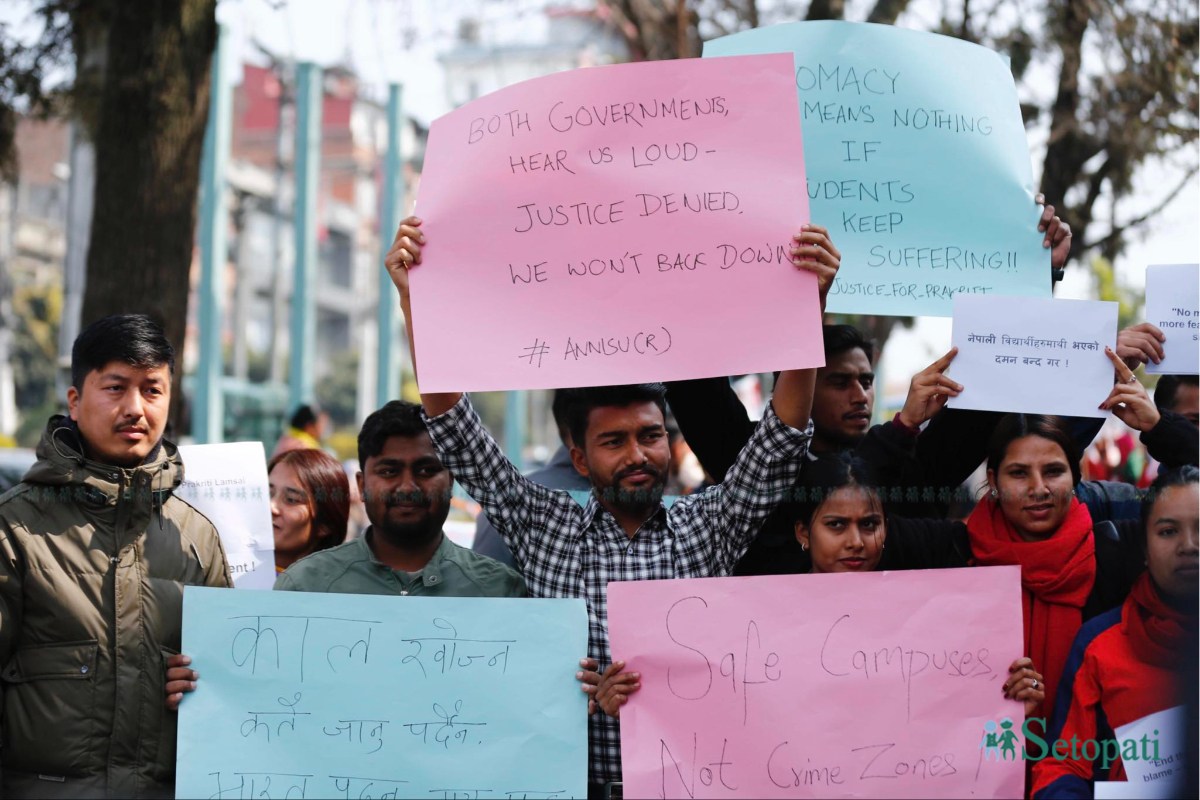 BOTH GOVERNMENTS,
HEAR US LOUD-
JUSTICE DENIED.
WE WON'T BACK DOWN
# ANNISU(R)
OMACY
MEANS NOTHING
IF
UDENTS
KEEP
SUFFERING!!
JUSTICE_FOR_PRAKRITI
नेपाली विद्यार्थीहरुमाथी भएको
दमन बन्द गर !
"No m
more fea
Prakriti Lamsal
ent !
काल खोज्न
कतै जानु पर्दैन.
भारत पढ्न
Safe Campuses,
Not Crime Zones!
Setopati
"End
blame